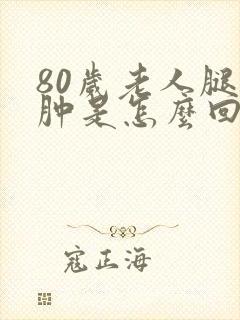 80歲老人腿
肿是怎麼回
寇正海